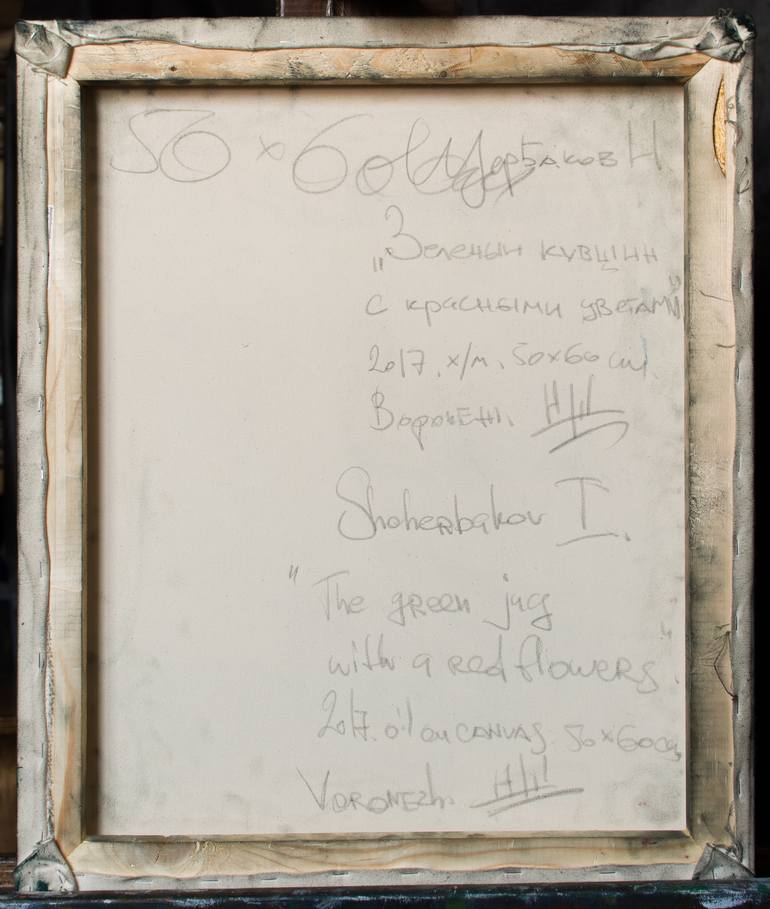 50 x 60 Щербаков И
„Зеленый кувшин
с красными цветами"
2017. х/м. 50x60 см.
Воронеж.
Shcherbakov I.
"The green jug
with a red flowers"
2017. oil on canvas 50x60 cm
Voronezh.